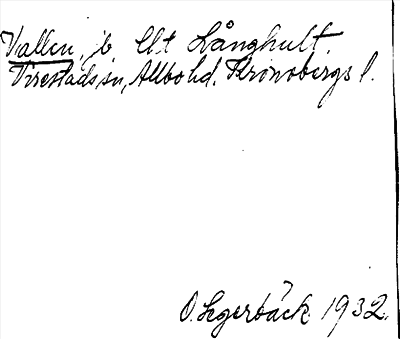 Vallen, jb Ebt Långhult.
Virestads sn, Allbo hd. Kronobergs l.
O. Segerbäck 1932.